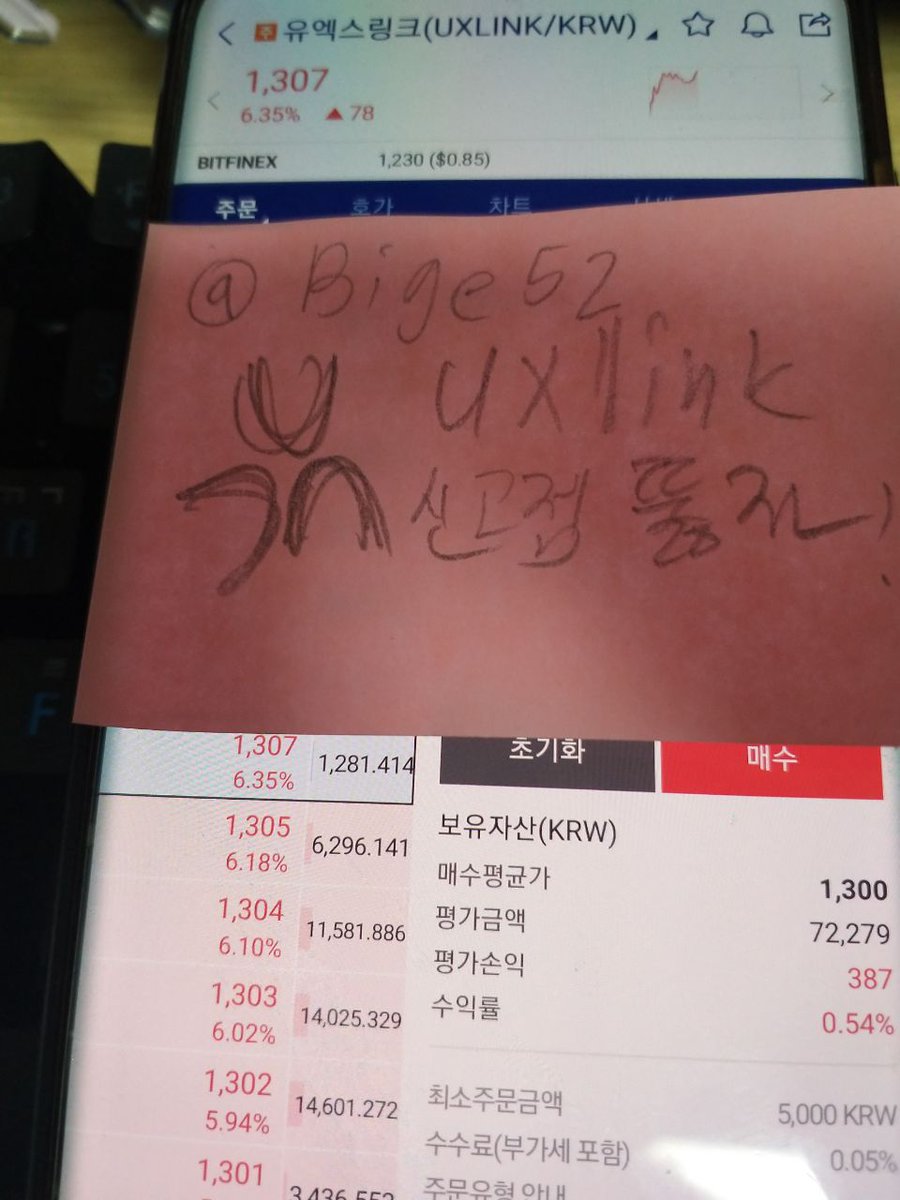 주 유엑스링크(UXLINK/KRW)
1,307
6.35% ▲ 78
BITFINEX 1,230 ($0.85)
주문 호가 차트 시세
@Bige52
uxlink
신고점 뚫자!
1,307 1,281.414
6.35%
1,305 6,296.141
6.18%
1,304 11,581.886
6.10%
1,303 14,025.329
6.02%
1,302 14,601.272
5.94%
1,301 3,436.552
초기화 매수
보유자산(KRW)
매수평균가 1,300
평가금액 72,279
평가손익 387
수익률 0.54%
최소주문금액 5,000 KRW
수수료(부가세 포함) 0.05%
주문유형 안내